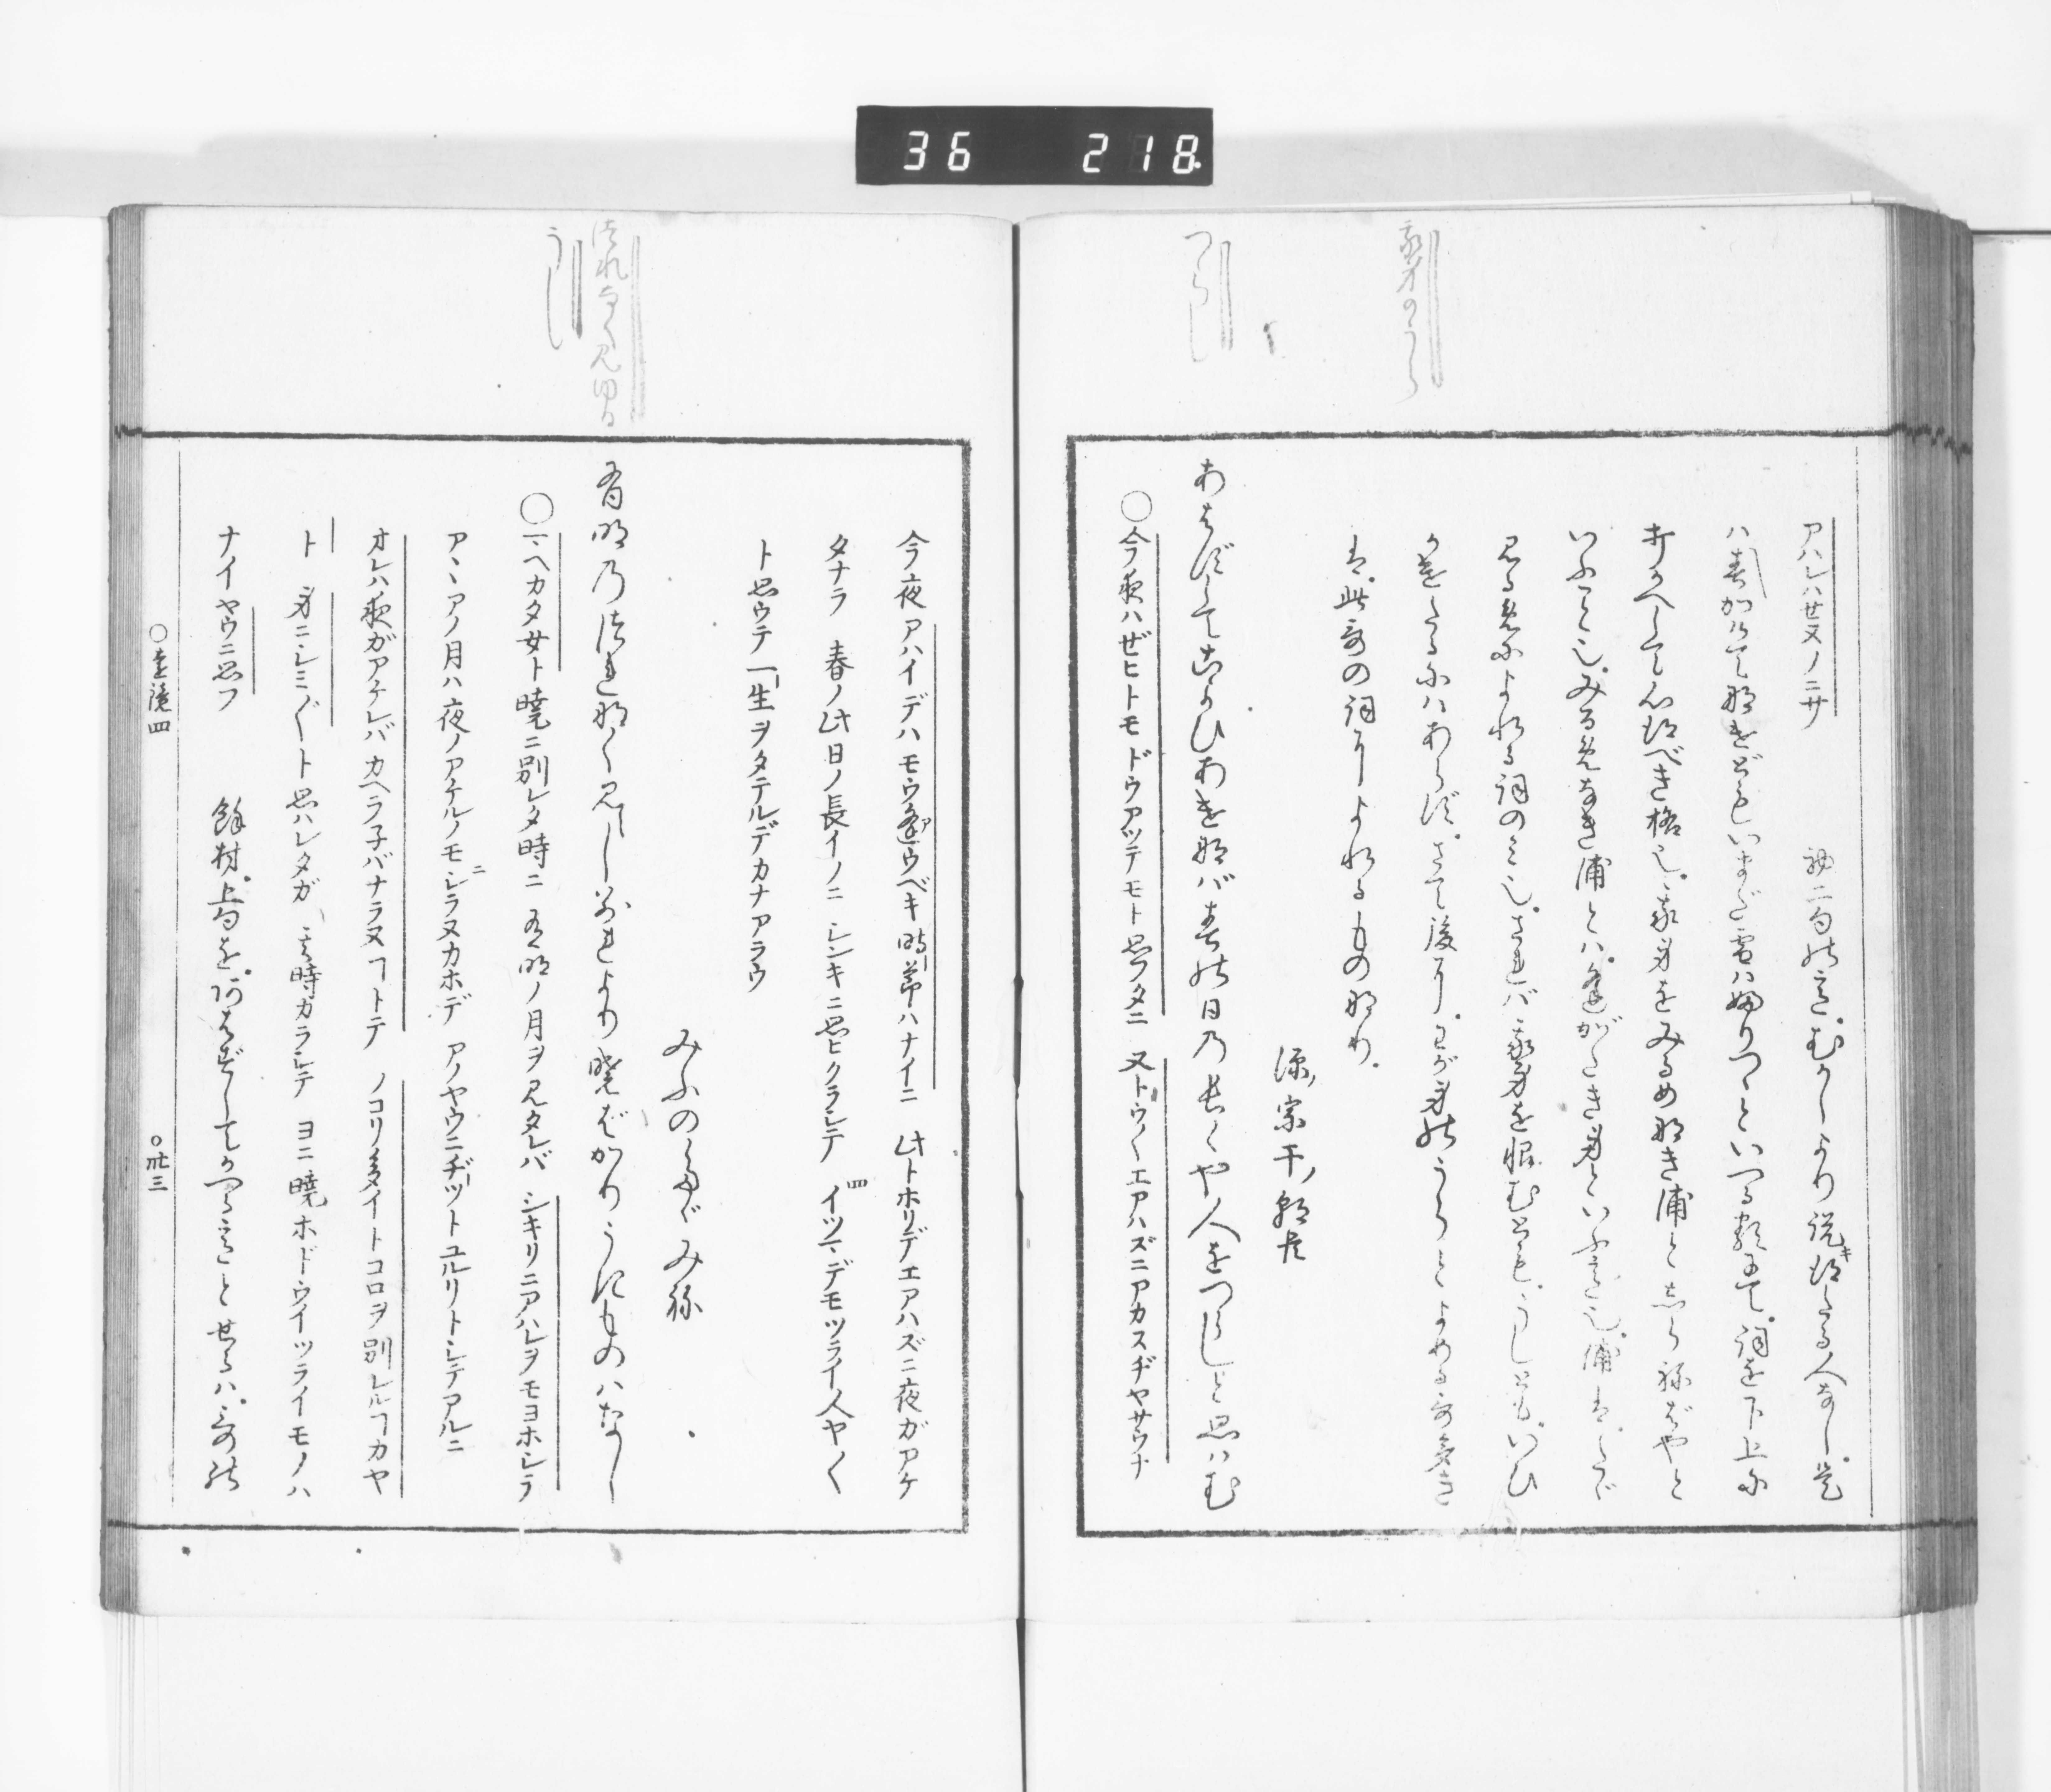 36 218
我身のうら
つらし
アハレハセヌノニサ 初二句の意。むかしより説キ得たる人なし。是
ハ春かけて鳴けどもいまだ雪ハふりつゝといへる類にて。詞を下上に
打かへして心得べき格也。我身をみるめなき浦としらねばやと
いふこと也。みるめなき浦とハ。逢がたき身といふ意也。浦は。たゞ
みるめによれる詞のミ也。されバ我身を恨むとも。うしとも。いひ
かけたるにハあらず。さて後に。わが身のうらとよめる哥多き
は。此哥の詞によれるものなり。
源ノ宗于ノ朝臣
あはずしてこよひあけなバ春の日の長くや人をつらしと思ハむ
○今夜ハゼヒトモドウアツテモト思フタニ 又トウ〱エアハズニアカスヂヤサウナ
つれなく見ゆる
うし
今夜アハイデハモウ逢(ア)ウベキ時節ハナイニ 此トホリデエアハズニ夜ガアケ
タナラ 春ノ此日ノ長イノニ シンキニ思ヒクラシテ 四イツマデモツライ人ヤ〱
ト思ウテ一生ヲタテルデカナアラウ
みぶのたゞみね
有明のつれなく見えし別れより暁ばかりうきものハなし
○マヘカタ女ト暁ニ別レタ時ニ 有明ノ月ヲ見タレバ シキリニアハレヲモヨホシテ
アヽアノ月ハ夜ノアケルノモニシラヌカホデ アノヤウニヂツトユルリトシテアルニ
オレハ夜ガアケレバカヘラ子バナラヌヿトテ ノコリ多イトコロヲ別レルヿカヤ
ト 身ニシミ〲ト思ハレタガ 其時カラシテ ヨニ暁ホドウイツライモノハ
ナイヤウニ思フ 餘材。上句を。あはずしてかへる意とせるハ。哥の
○遠鏡四 ○卅三